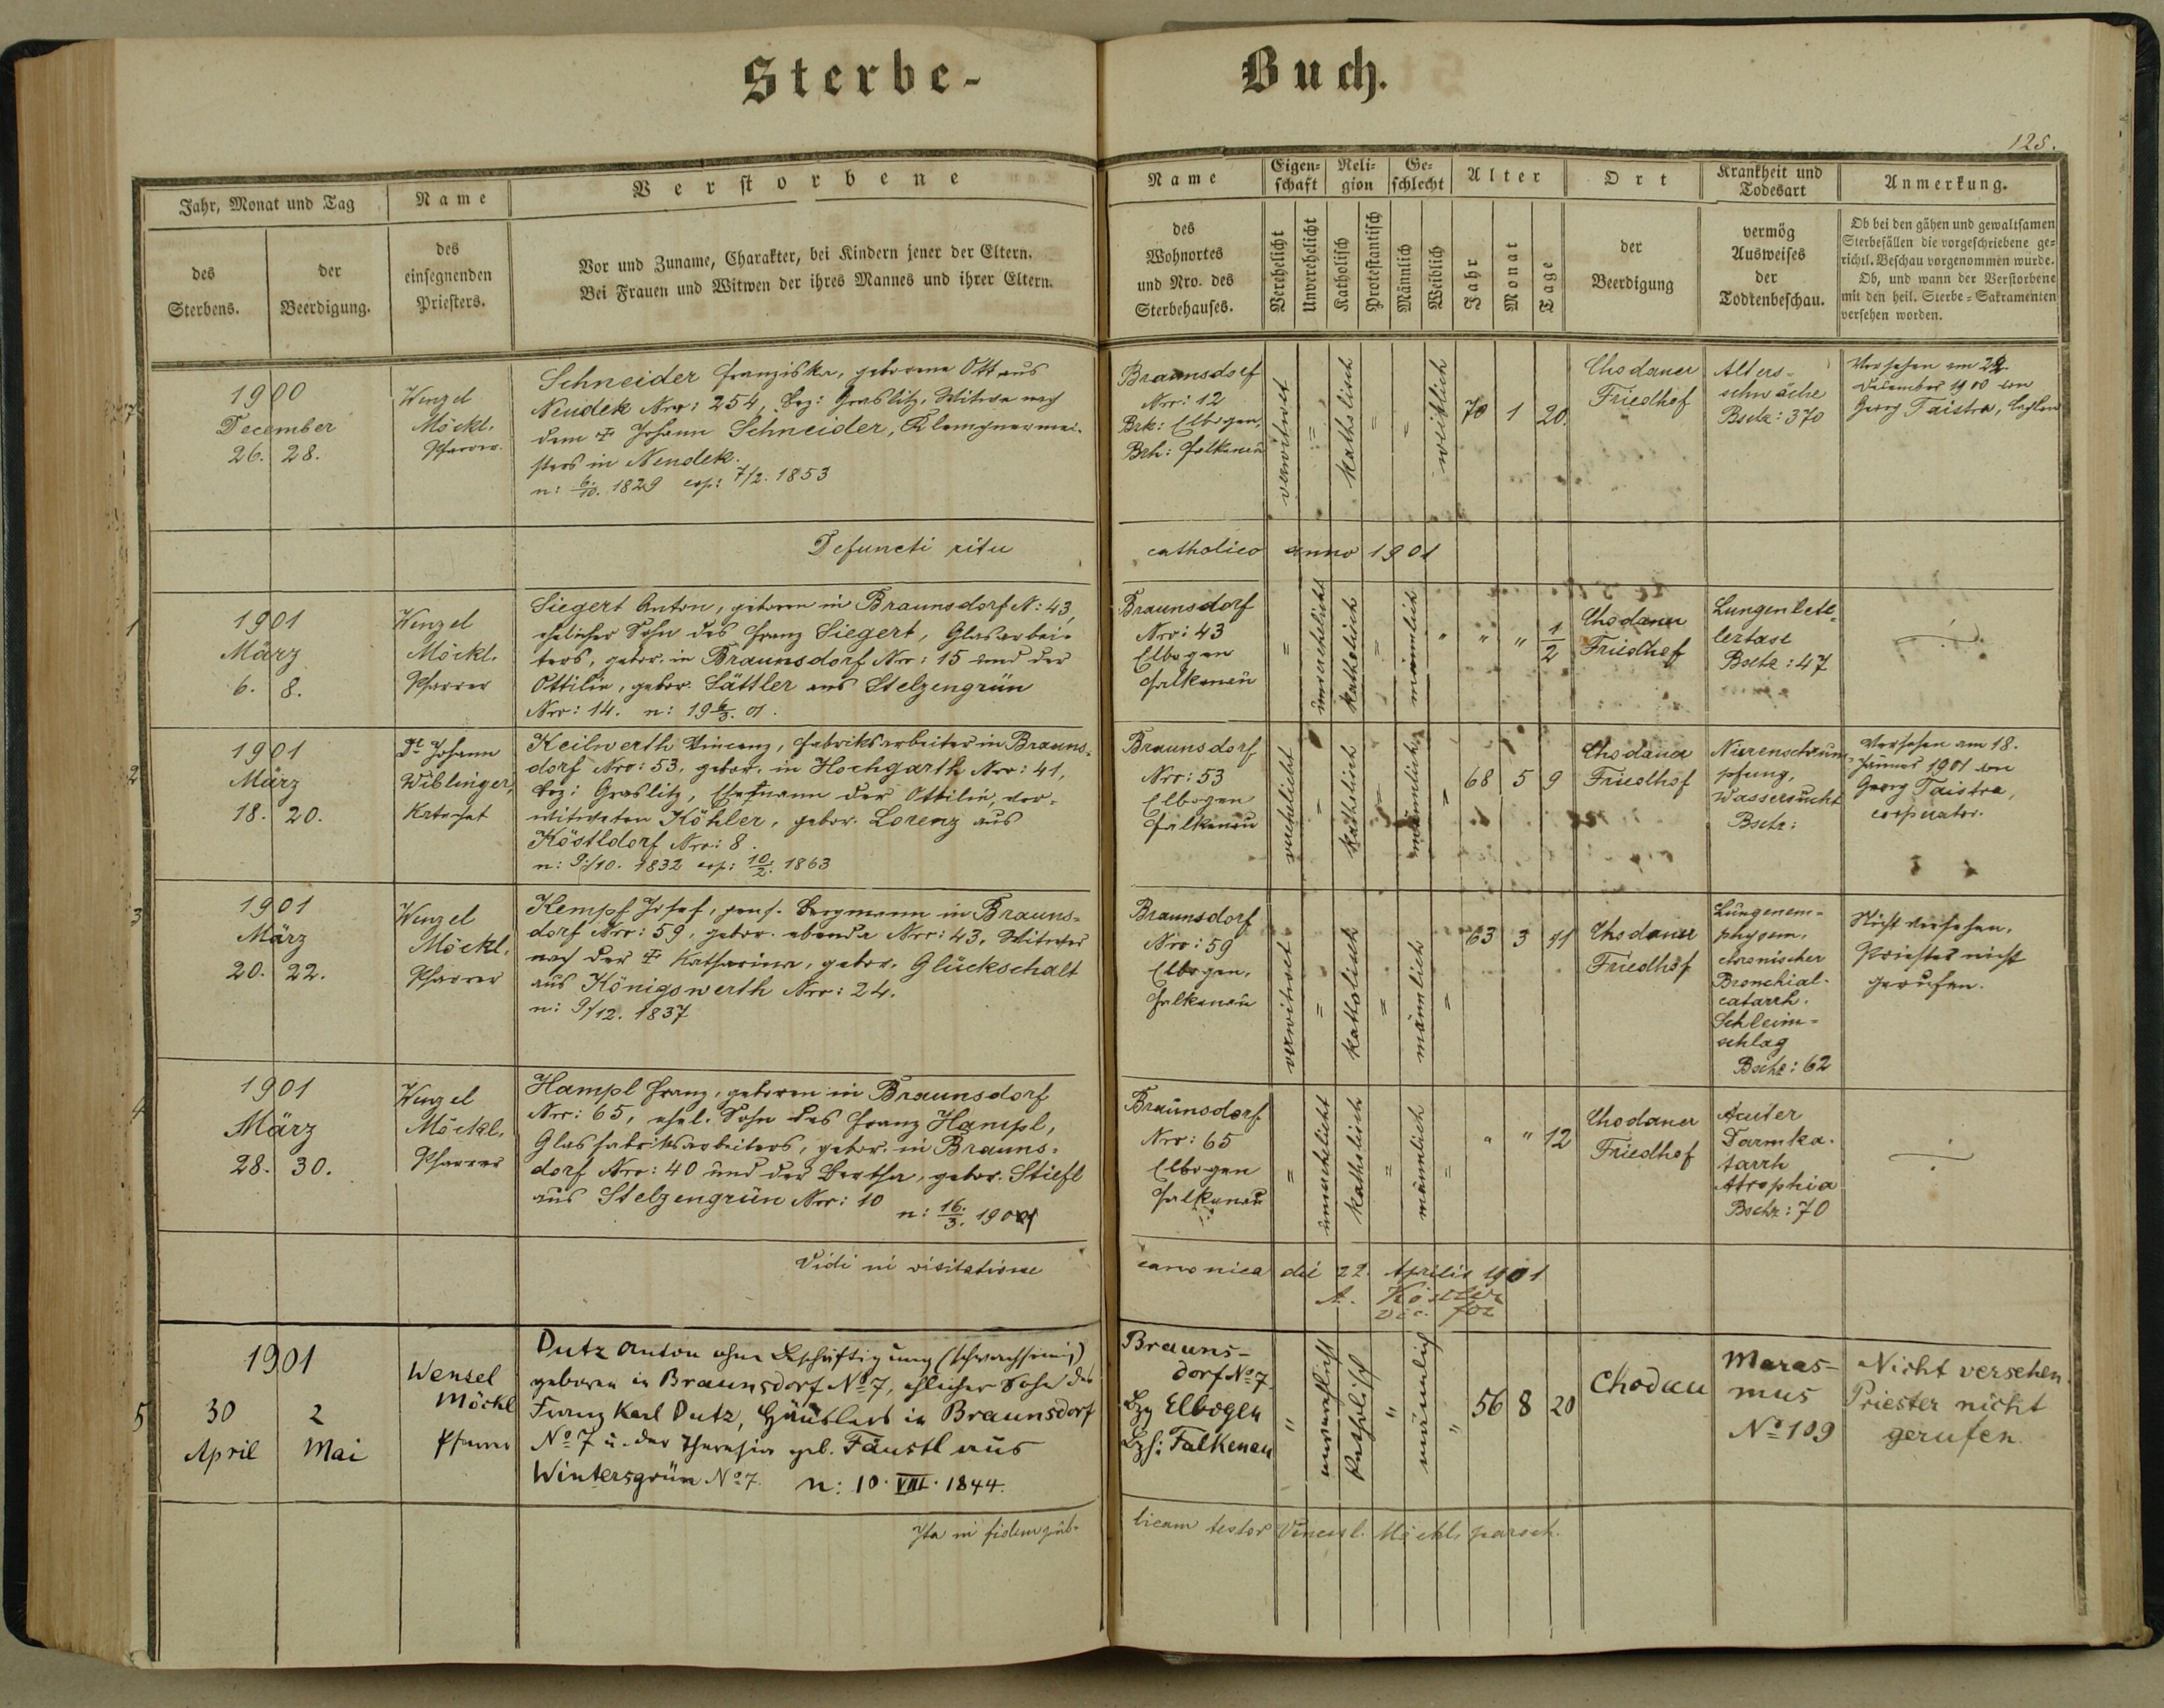 Sterbe-
Buch.
125.
Jahr, Monat und Tag
des
Sterbens.
der
Beerdigung.
Name
des
einsegnenden
Priesters.
Verstorbene
Vor und Zuname, Charakter, bei Kindern jener der Eltern.
Bei Frauen und Witwen der ihres Mannes und ihrer Eltern.
Name
des
Wohnortes
und Nro. des
Sterbehauses.
Eigen-
schaft
Verehelicht
Unverehelicht
Reli-
gion
Katholisch
Protestantisch
Ge-
schlecht
Männlich
Weiblich
Alter
Jahr
Monat
Tage
Ort
der
Beerdigung
Krankheit und
Todesart
vermög
Ausweises
der
Todtenbeschau.
Anmerkung.
Ob bei den gähen und gewaltsamen
Sterbefällen die vorgeschriebene ge-
richtl. Beschau vorgenommen wurde.
Ob, und wann der Verstorbene
mit den heil. Sterbe-Sakramenten
versehen worden.
1900
December
26. 28.
Wenzel
Möckl,
Pfarrer.
Schneider Franziska, geborene Ott aus
Neudek Nro: 254, Bez: Graslitz, Witwe nach
dem ✝ Johann Schneider, Klempnermei-
sters in Neudek.
n: 6./10. 1829 cop: 7/2. 1853
Braunsdorf
Nro: 12
Bzk: Elbogen,
Bzh: Falkenau
verwitwet
=
katholisch
=
=
weiblich
70 1 20.
Chodauer
Friedhof
Alters-
schwäche
Bschz: 370
Versehen am 22.
December 1900 von
Georg Taistra,
Defuncti ritu
catholico anno 1901
1
1901
März
6. 8.
Wenzel
Möckl,
Pfarrer
Siegert Anton, geboren in Braunsdorf N: 43,
ehelicher Sohn des Franz Siegert, Glasarbei-
ters, gebor. in Braunsdorf Nro: 15 und der
Ottilie, gebor. Sättler aus Stelzengrün
Nro: 14. n: 19 6/3. 01.
Braunsdorf
Nro: 43
Elbogen
Falkenau
=
unverehlicht
katholisch
=
männlich
" " " 1/2
Chodauer
Friedhof
Lungenlete-
lectase
Bschz: 47
2
1901
März
18. 20.
Dr Johann
Wiblinger,
Katechet
Keilwerth Vincenz, Fabriksarbeiter in Brauns-
dorf Nro: 53, gebor. in Hochgarth Nro: 41,
Bez: Graslitz, Ehemann der Ottilie, ver-
witweten Köhler, gebor. Lorenz aus
Köstldorf Nro: 8.
n: 9./10. 1832 cop: 10./2. 1863
Braunsdorf
Nro: 53
Elbogen
Falkenau
verehelicht
=
katholisch
=
männlich
=
68 5 9
Chodauer
Friedhof
Nierenschrum-
pfung,
Wassersucht
Bschz:
Versehen am 18.
Jänner 1901 von
Georg Taistra,
cooperator.
3
1901
März
20. 22.
Wenzel
Möckl,
Pfarrer
Kempf Josef, pens. Bergmann in Brauns-
dorf Nro: 59, gebor. ebenda Nro: 43, Witwer
nach der ✝ Katharina, gebor. Glückschalt
aus Königswerth Nro: 24.
n: 9/12. 1837
Braunsdorf
Nro: 59
Elbogen,
Falkenau
verwitwet
=
katholisch
=
männlich
=
63 3 11
Chodauer
Friedhof
Lungenem-
physem,
chronischer
Bronchial-
catarrh.
Schleim-
schlag
Bschz: 62
Nicht versehen.
Priester nicht
gerufen.
4
1901
März
28. 30.
Wenzel
Möckl,
Pfarrer
Hampl Franz, geboren in Braunsdorf
Nro: 65, ehel. Sohn des Franz Hampl,
Glasfabriksarbeiters, gebor. in Brauns-
dorf Nro: 40 und der Bertha, gebor. Stiefl
aus Stelzengrün Nro: 10
n: 16./3. 1901
Braunsdorf
Nro: 65
Elbogen
Falkenau
=
unverehelicht
katholisch
=
männlich
=
" " 12
Chodauer
Friedhof
Acuter
Darmka-
tarrh
Atrophia
Bschz: 70
Vidi in visitatione
canonica die 22. Aprilis 1901
A. Köstler
vic. for
5
1901
30 2
April Mai
Wenzel
Möckl
Pfarrer
Dutz Anton ohne Beschäftigung (schwachsinnig)
geboren in Braunsdorf No 7, ehlicher Sohn des
Franz Karl Dutz, Häuslers in Braunsdorf
No 7 u. der Theresia geb. Fäustl aus
Wintersgrün No 7. n: 10. VIII. 1844.
Brauns-
dorf No 7
Bzg Elbogen
Bzh: Falkenau
"
unverehlicht
Katholisch
"
männlich
"
56 8 20
Chodau
Maras-
mus
No 109
Nicht versehen
Priester nicht
gerufen.
Ita in fidem pub-
licam testor Vencesl. Möckl, paroch.